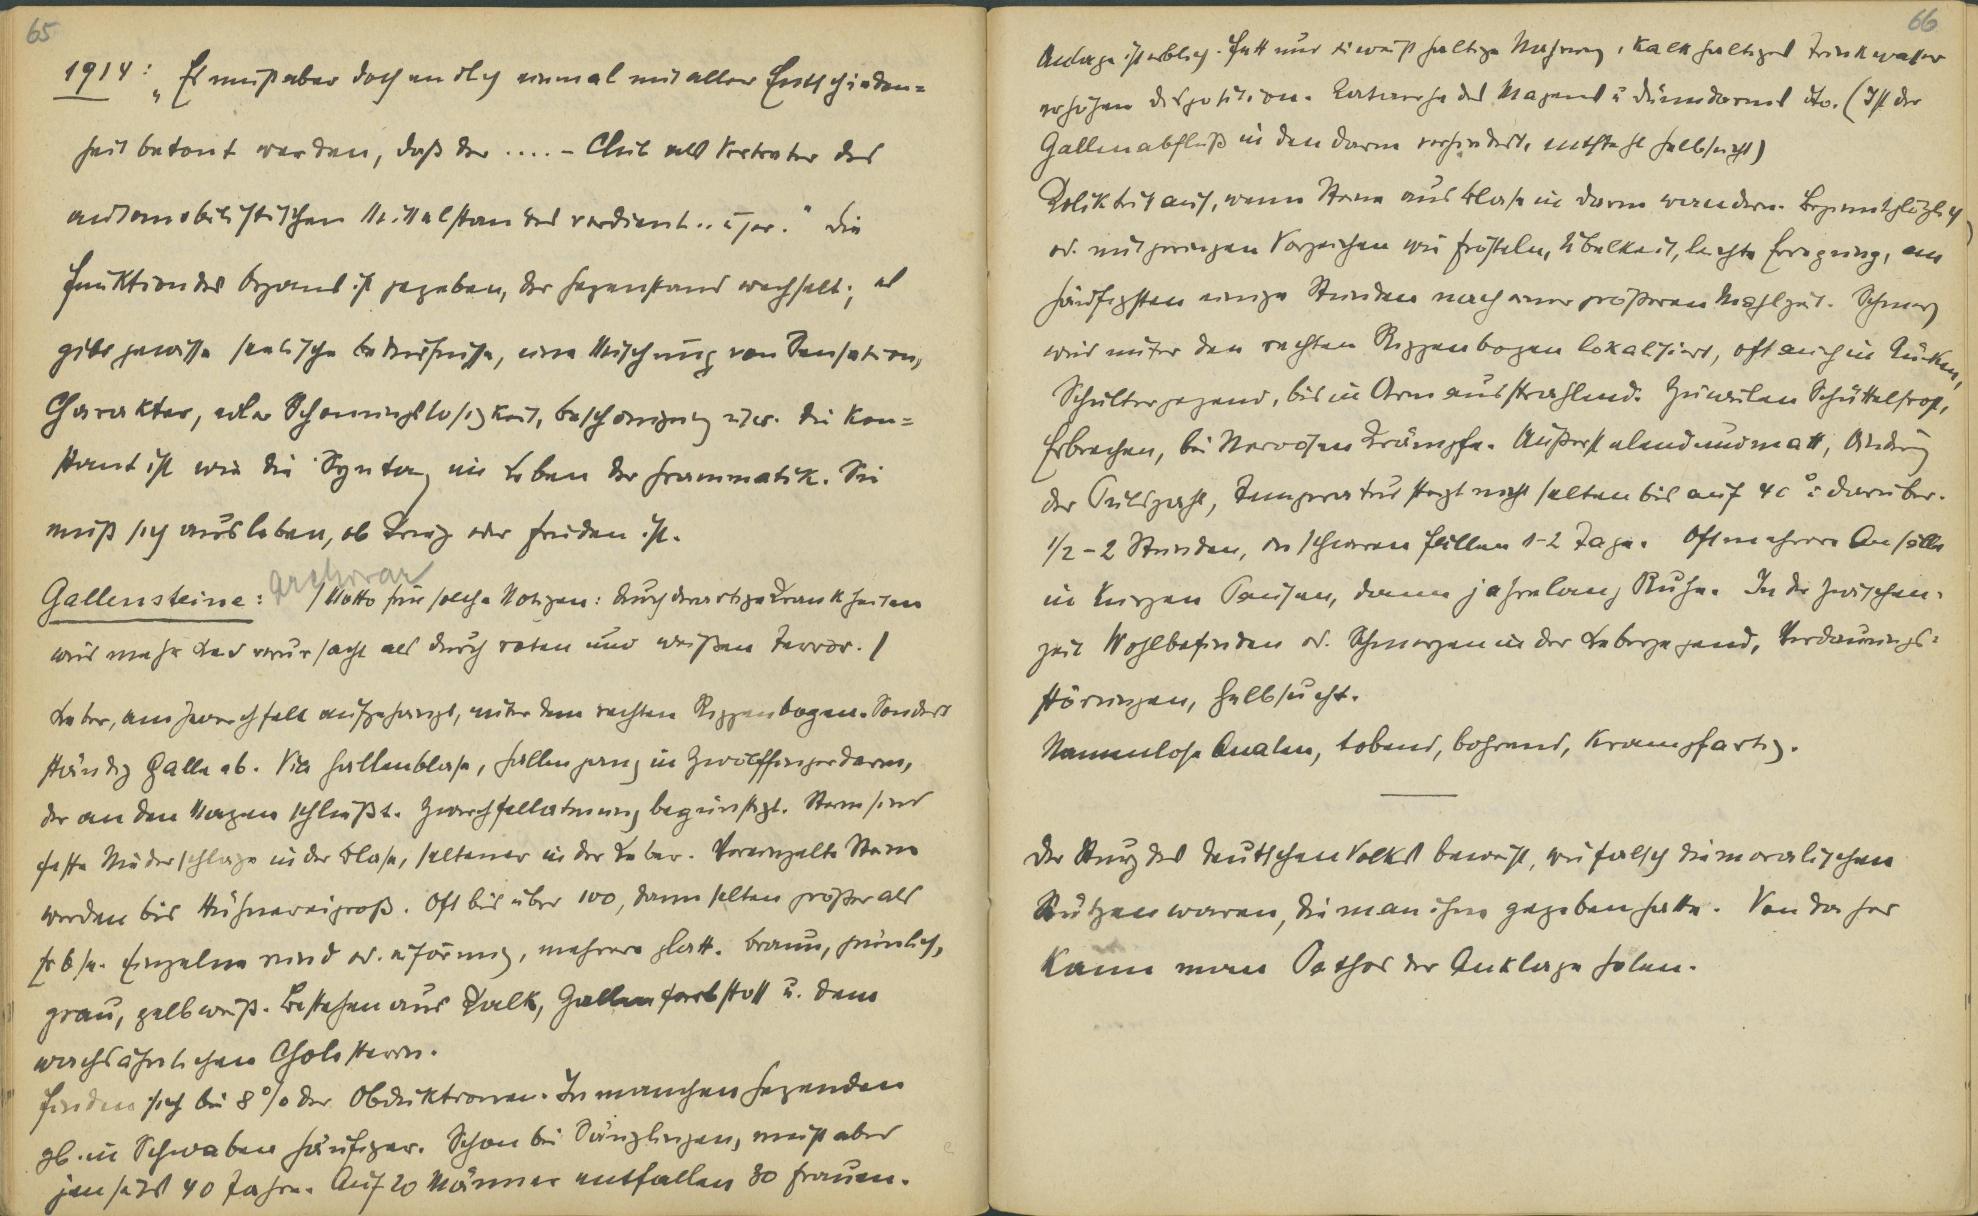 65
1914: „Es muß aber doch endlich einmal mit aller Entschieden=
heit betont werden, daß der .... - Club als Vertreter des
automobilistischen Mittelstandes verdient .. usw." Die
Funktion des Organs ist gegeben, der Gegenstand wechselt; es
gibt gewisse seelische Bedürfnisse, eine Mischung von Sensation,
Charakter, edler Schonungslosigkeit, Beschönigung usw. Die Kon=
stant ist wie die Syntax im Leben der Grammatik. Sie
muß sich ausleben, ob Krieg oder Frieden ist.
Gallensteine: /Motto für solche Notizen: Durch derartige Krankheiten
wird mehr Leid verursacht als durch roten und weißen Terror./
Leber, am Zwerchfell aufgehängt, unter dem rechten Rippenbogen. Sondert
ständig Galle ab. Via Gallenblase, Gallengang in Zwölffingerdarm,
der an den Magen schließt. Zwerchfellatmung begünstigt. Steine sind
feste Niederschläge in der Blase, seltener in der Leber. Vereinzelte Steine
werden bis Hühnereigroß. Oft bis über 100, dann selten größer als
Erbse. Einzelne rund od. eiförmig, mehrere glatt. braun, grünlich,
grau, gelbweiß. Bestehen aus Kalk, Gallenfarbstoff u. dem
wachsähnlichen Cholestearin.
Finden sich bei 8% der Obduktionen. In manchen Gegenden
zb. in Schwaben häufiger. Schon bei Säuglingen, meist aber
jenseits 40 Jahre. Auf 20 Männer entfallen 30 Frauen.
66
Anlage ist erblich. Fett und eiweißhaltige Nahrung, kalkhaltiges Trinkwasser
erhöhen Disposition. Katarrhe des Magens u Dünndarms dto. (Ist der
Gallenabfluß in den Darm verhindert, entsteht Gelbsucht)
Kolik tritt auf, wenn Steine aus Blase in Darm wandern. Beginnt plötzlich
od. mit geringen Vorzeichen wie Frösteln, Übelkeit, leichte Erregung, am
häufigsten einige Stunden nach einer größeren Mahlzeit. Schmerz
wird unter den rechten Rippenbogen lokalisiert, oft auch in Rücken,
Schultergegend, bis in Arm ausstrahlend. Zuweilen Schüttelfrost,
Erbrechen, bei Nervösen Krämpfe. Äußerst elend und matt,
der Pulszahl, Temperatur steigt nicht selten bis auf 40° u darüber.
1/2 - 2 Stunden, in schweren Fällen 1-2 Tage. Oft mehrere Anfälle
in kurzen Pausen, dann jahrelang Ruhe. In der Zwischen=
zeit Wohlbefinden od. Schmerzen in der Lebergegend, Verdauungs=
störungen, Gelbsucht.
Namenlose Qualen, tobend, bohrend, krampfartig.
Der Sturz des deutschen Volks beweist, wie falsch die moralischen
Stützen waren, die man ihm gegeben hatte. Von da her
kann man Pathos der Anklage holen.